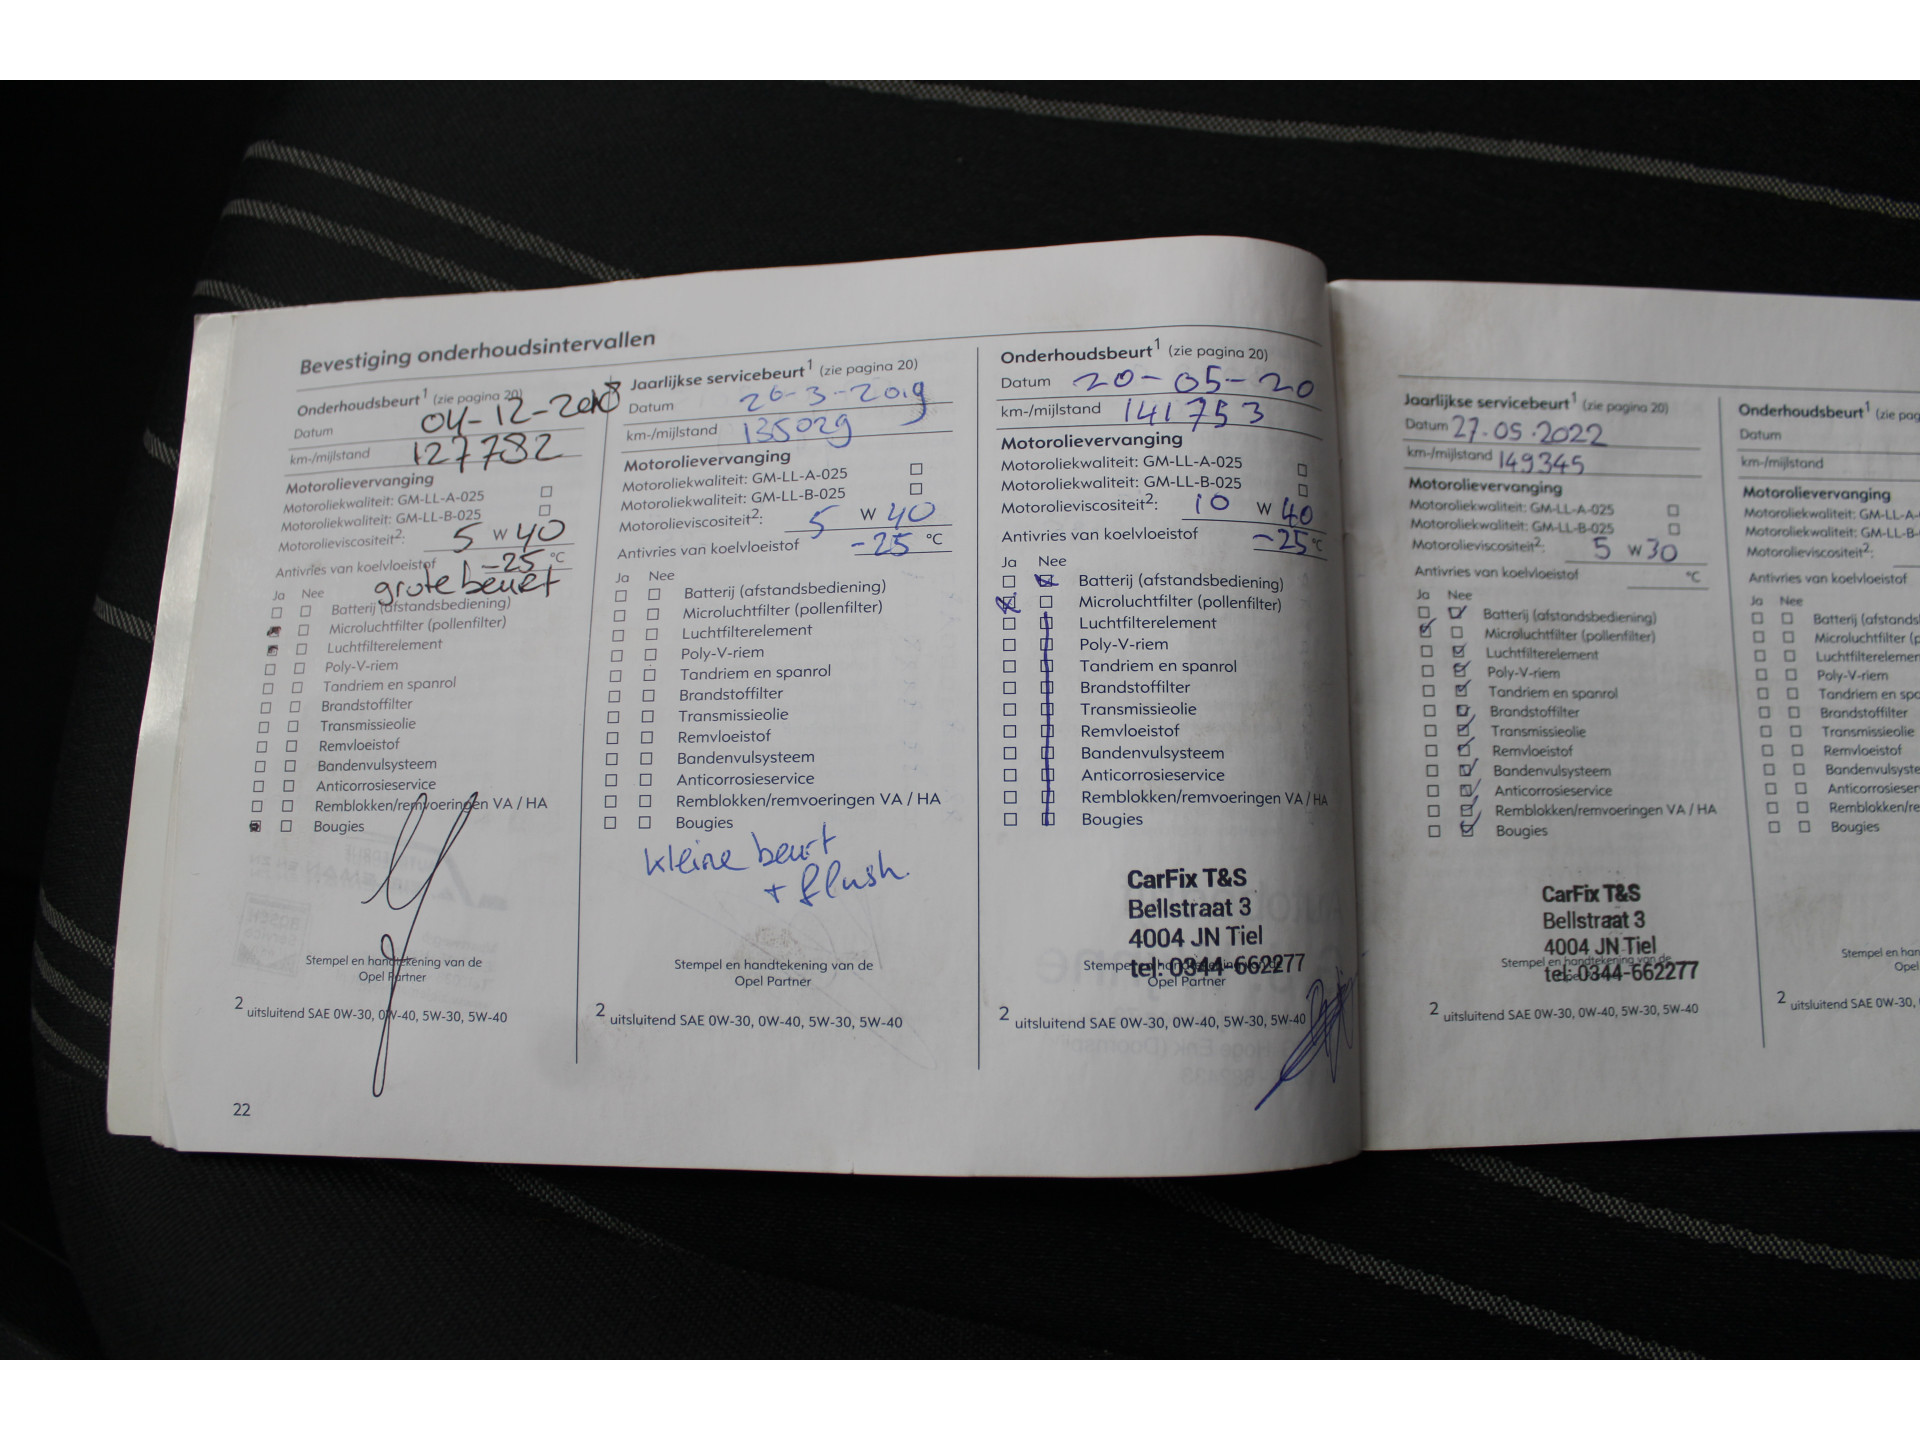 Bevestiging onderhoudsintervallen
Onderhoudsbeurt1 (zie pagina 20)
Datum 04-12-2018
km-/mijlstand 127782
Motorolievervanging
Motoroliekwaliteit: GM-LL-A-025
Motoroliekwaliteit: GM-LL-B-025
Motorolieviscositeit2: 5 W 40
Antivries van koelvloeistof -25 °C
grote beurt
Ja Nee
Batterij (afstandsbediening)
Microluchtfilter (pollenfilter)
Luchtfilterelement
Poly-V-riem
Tandriem en spanrol
Brandstoffilter
Transmissieolie
Remvloeistof
Bandenvulsysteem
Anticorrosieservice
Remblokken/remvoeringen VA / HA
Bougies
Stempel en handtekening van de
Opel Partner
2 uitsluitend SAE 0W-30, 0W-40, 5W-30, 5W-40
22
Jaarlijkse servicebeurt1 (zie pagina 20)
Datum 26-3-2019
km-/mijlstand 135029
Motorolievervanging
Motoroliekwaliteit: GM-LL-A-025
Motoroliekwaliteit: GM-LL-B-025
Motorolieviscositeit2: 5 W 40
Antivries van koelvloeistof -25 °C
Ja Nee
Batterij (afstandsbediening)
Microluchtfilter (pollenfilter)
Luchtfilterelement
Poly-V-riem
Tandriem en spanrol
Brandstoffilter
Transmissieolie
Remvloeistof
Bandenvulsysteem
Anticorrosieservice
Remblokken/remvoeringen VA / HA
Bougies
kleine beurt
+ flush.
Stempel en handtekening van de
Opel Partner
2 uitsluitend SAE 0W-30, 0W-40, 5W-30, 5W-40
Onderhoudsbeurt1 (zie pagina 20)
Datum 20-05-20
km-/mijlstand 141753
Motorolievervanging
Motoroliekwaliteit: GM-LL-A-025
Motoroliekwaliteit: GM-LL-B-025
Motorolieviscositeit2: 10 W 40
Antivries van koelvloeistof -25 °C
Ja Nee
Batterij (afstandsbediening)
Microluchtfilter (pollenfilter)
Luchtfilterelement
Poly-V-riem
Tandriem en spanrol
Brandstoffilter
Transmissieolie
Remvloeistof
Bandenvulsysteem
Anticorrosieservice
Remblokken/remvoeringen VA / HA
Bougies
CarFix T&S
Bellstraat 3
4004 JN Tiel
tel: 0344-662277
Stempel en handtekening van de
Opel Partner
2 uitsluitend SAE 0W-30, 0W-40, 5W-30, 5W-40
Jaarlijkse servicebeurt1 (zie pagina 20)
Datum 27.05.2022
km-/mijlstand 149345
Motorolievervanging
Motoroliekwaliteit: GM-LL-A-025
Motoroliekwaliteit: GM-LL-B-025
Motorolieviscositeit2: 5 W 30
Antivries van koelvloeistof °C
Ja Nee
Batterij (afstandsbediening)
Microluchtfilter (pollenfilter)
Luchtfilterelement
Poly-V-riem
Tandriem en spanrol
Brandstoffilter
Transmissieolie
Remvloeistof
Bandenvulsysteem
Anticorrosieservice
Remblokken/remvoeringen VA / HA
Bougies
CarFix T&S
Bellstraat 3
4004 JN Tiel
tel: 0344-662277
Stempel en handtekening van de
2 uitsluitend SAE 0W-30, 0W-40, 5W-30, 5W-40
Onderhoudsbeurt1 (zie pag
Datum
km-/mijlstand
Motorolievervanging
Motoroliekwaliteit: GM-LL-A-
Motoroliekwaliteit: GM-LL-B-
Motorolieviscositeit2:
Antivries van koelvloeistof
Ja Nee
Batterij (afstands
Microluchtfilter (p
Luchtfilterelemen
Poly-V-riem
Tandriem en spa
Brandstoffilter
Transmissieolie
Remvloeistof
Bandenvulsyste
Anticorrosieser
Remblokken/re
Bougies
Stempel en hand
Opel
2 uitsluitend SAE 0W-30,